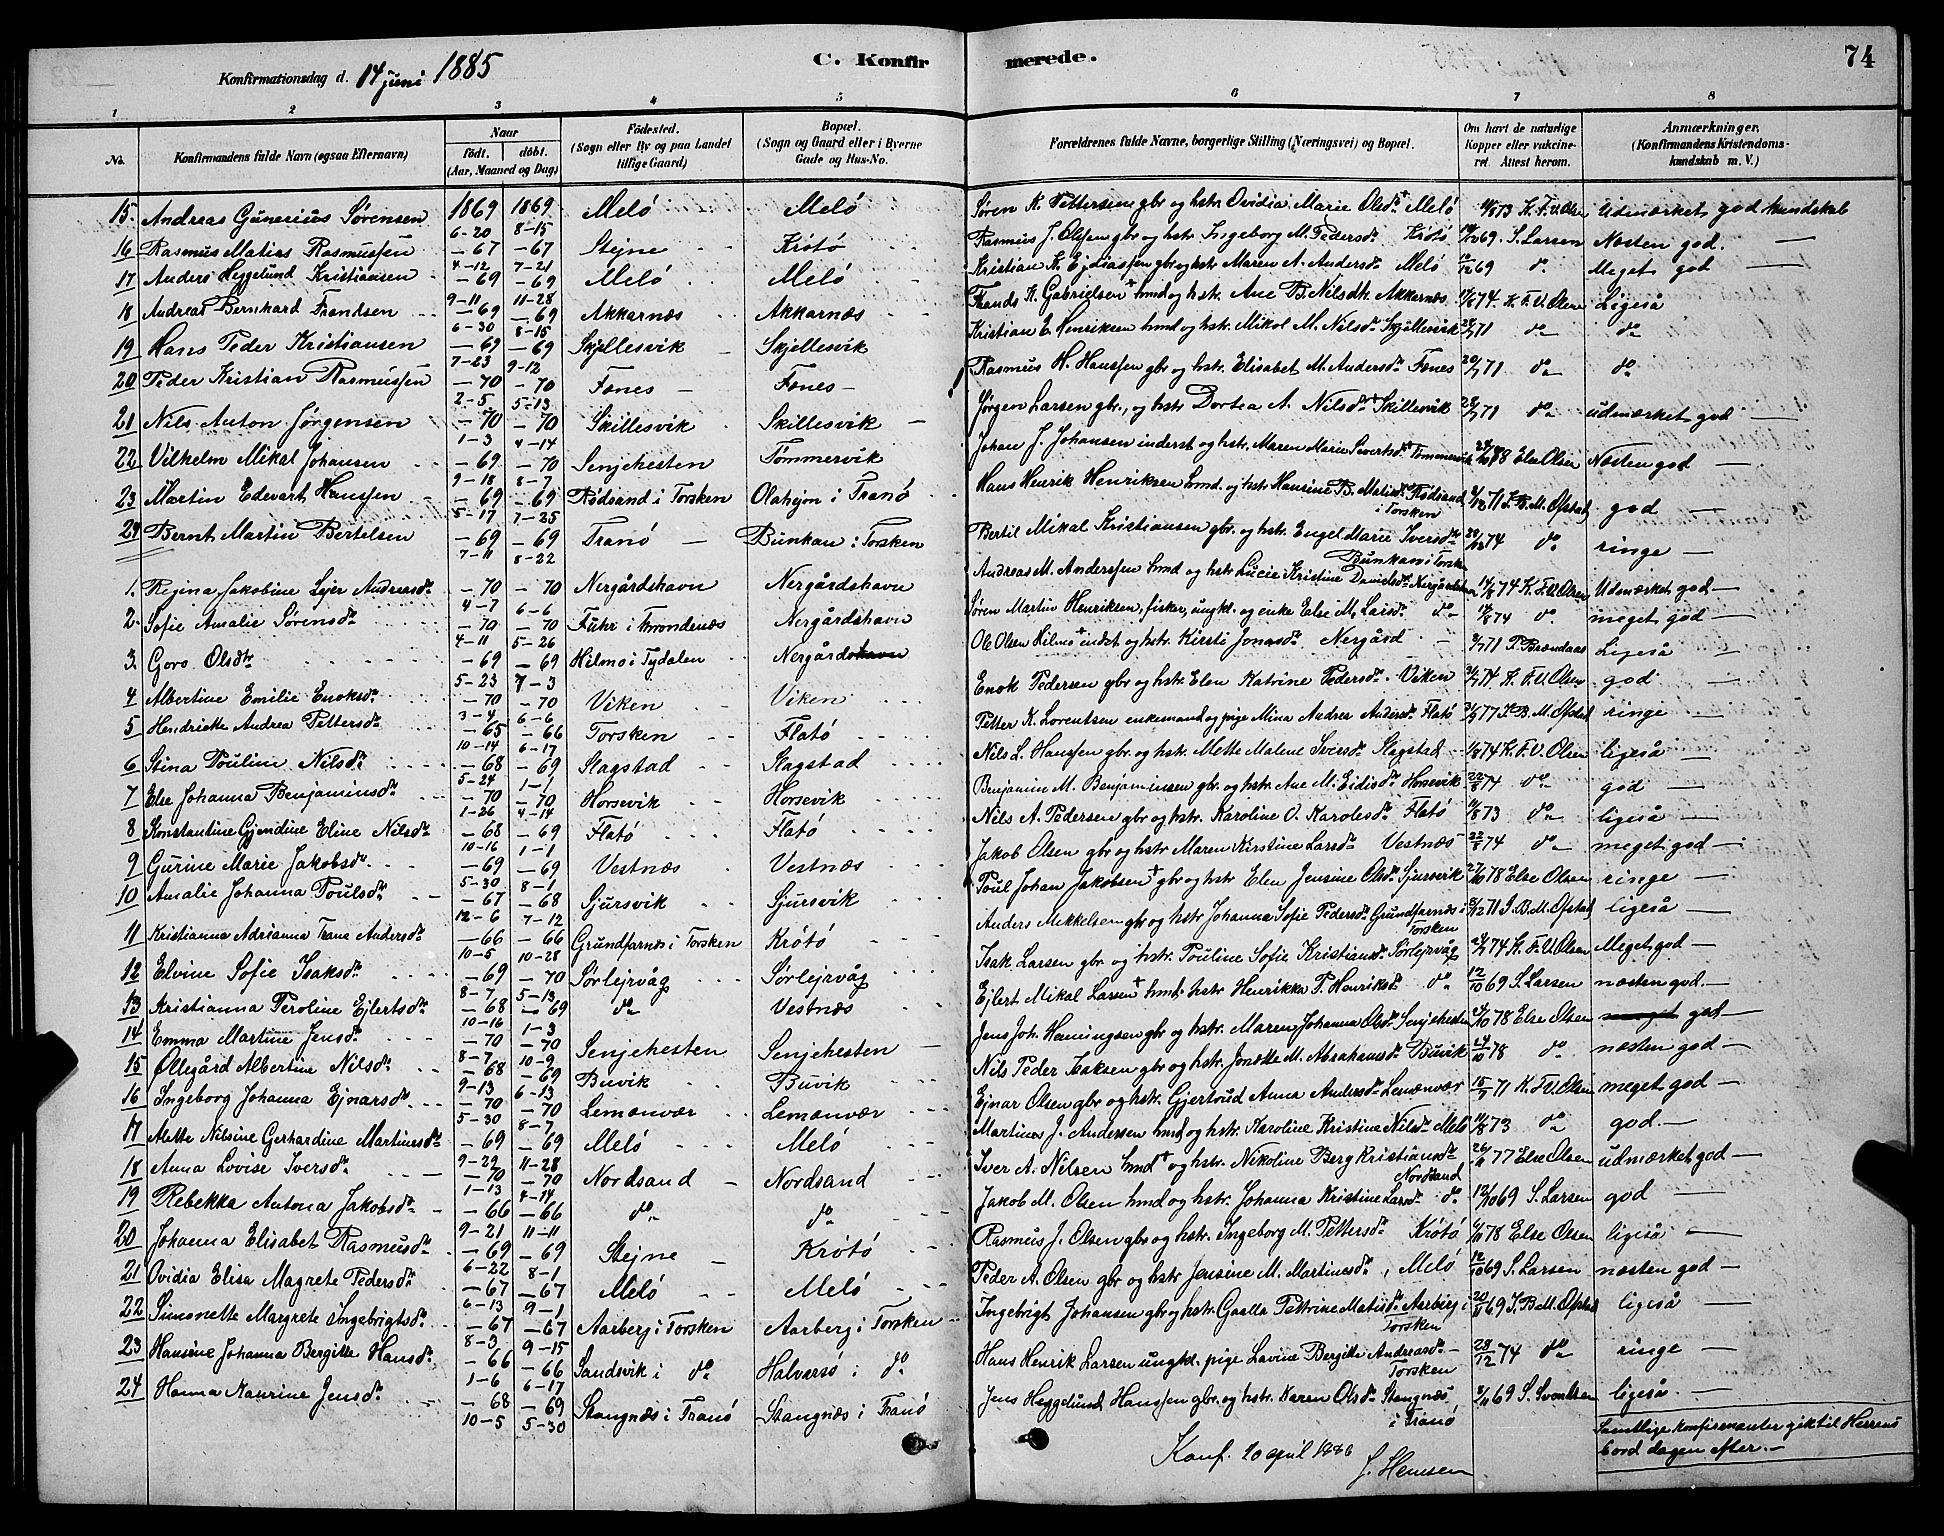 Konfirmationsdag d. 14 juni 1885
C. Konfirmerede.
74
1 2 3 4 5 6 7 8
No.
Konfirmandens fulde Navn (ogsaa Efternavn)
Naar
födt. döbt.
(Aar, Maaned og Dag)
Födested.
(Sogn eller By og paa Landet
tillige Gaard)
Bopæl.
(Sogn og Gaard eller i Byerne
Gade og Hus-No.
Forældrenes fulde Navne, borgerlige Stilling (Næringsvei) og Bopæl.
Om havt de naturlige
Kopper eller vakcine-
ret. Attest herom.
Anmærkninger.
(Konfirmandens Kristendoms-
kundskab m. V.)
15. Andreas Gunerius Sørensen 1869 6-20 1869 8-15 Melö Melö Søren K. Pettersen gbr og hstr Ovidia Marie Olsdr Melö 73 K. F. V. Olsen Udmærket god kundskab
16 Rasmus Matias Rasmussen -67 4-12 -67 7-21 Stejne Krötö Rasmus J. Olsen gbr og hstr Ingeborg M. Pedersdr Krötö 69. S. Larsen Næsten god. —
17 Anders Heggelund Kristiansen -69 9-11 -69 11-28 Melö Melö Kristian K. Ejdiassen gbr og hstr Maren A. Andersdr Melö 12/12 69 do Meget god —
18 Andreas Bernhard Frandsen -69 6-30 -69 8-15 Akkarnæs Akkarnæs Frands K. Gabrielsen + hmd og hstr. Ane B. Nilsdtr. Akkarnæs 74. K. F. V. Olsen Ligeså
19 Hans Peder Kristiansen -69 7-23 -69 9-12 Skjellesvik Skjellesvik Kristian E. Henriksen hmd og hstr. Mikol M. Nilsdr Skjellesvik 71 do do
20 Peder Kristian Rasmussen -70 2-5 -70 5-13 Fønes Fønes Rasmus H. Hanssen gbr og hstr. Elisabet M. Andersdr Fønes 71 do do
21 Nils Anton Jørgensen -70 1-3 -70 4-14 Skillesvik Skillesvik Jørgen Larsen gbr., og hstr Dortea A. Nilsdr + Skillesvik 71 do udmærket god —
22 Vilhelm Mikal Johansen -69 9-18 -70 8-7 Senjehesten Tömmervik Johan J. Johansen inderst og hstr. Maren Marie Sivertsdr + Tömmervik 78 Else Olsen Næsten god —
23 Martin Edevart Hanssen -69 5-17 -69 7-25 Rødsand i Torsken Olahejm i Tranö Hans Henrik Henriksen hmd. og hstr Hansine B. Matisdr Rødsand i Torsken 71 J. B. M. Ofstad god —
24 Bernt Martin Bertelsen -69 7-11 -69 8-22 Tranö Bunkan i Torsken Bertil Mikal Kristiansen gbr. og hstr. Engel Marie Iversdr Bunkan i Torsken 74 do ringe —
1. Regina Jakobine Lejer Andreasdr -70 4-7 -70 6-6 Nergårdshavn Nergårdshavn Andreas M. Anderssen hmd og hstr Lucie Kristine Danielsdr Nergårdshavn 14/8 74 K. F. V. Olsen Udmærket god —
2. Sofie Amalie Sørensdr -70 4-11 -70 5-26 Fuhr i Throndenæs Nergårdshavn Søren Martin Henriksen, fisker, ungkl. og enke Else M. Larsdr do 14/8 74 do meget god —
3. Goro Olsdtr -69 5-23 -69 7-3 Hilmo i Tydalen Nergård Ole Olsen Hilmo + inderst og hstr. Kirsti Jonasdr Nergård 71 P. Brændaas Ligeså —
4 Albertine Emilie Enoksdr -70 3-4 -70 6-6 Viken Viken Enok Pedersen gbr og hstr. Elen Katrine Pedersdr. Viken 74 K. F. V. Olsen god —
5 Hendrikke Andrea Pettersdr -65 10-14 -66 6-17 Torsken Flatö Petter K. Lorentsen enkemand og pige Mina Andrea Andersdr Flatö 77 J. B. M. Ofstad ringe —
6 Stina Pouline Nilsdr -68 5-24 -69 1-1 Slagstad Slagstad Nils L. Hanssen gbr. og hstr. Mette Malene Iversdr Slagstad 74 K. F. V. Olsen ligeså —
7 Else Johanna Benjaminsdr -70 1-26 -70 4-14 Horsevik Horsevik Benjamin M. Benjaminsen gbr. og hstr Ane M. Eidisdr Horsevik 22/8 74 do god —
8 Konstantine Gjendine Eline Nilsdr -68 10-16 -69 1-1 Flatö Flatö Nils A. Pedersen gbr og hstr. Karoline O. Karolesdr Flatö 73 do ligeså —
9 Gurine Marie Jakobsdr -69 5-30 -69 8-1 Vestnæs Vestnæs Jakob Olsen gbr og hstr Maren Kirstine Larsdr Vestnæs 22/8 74 do meget god —
10 Amalie Johanna Poulsdr -67 12-6 -68 7-12 Sjursvik Sjursvik Poul Johan Jakobsen + gbr og hstr Elen Jensine Olsdr Sjursvik 27/10 78 Else Olsen ringe —
11 Kristianna Adrianna Trane Andersdr -66 10-5 -66 10-28 Grundfarnæs i Torsken Krötö Anders Mikkelsen gbr og hstr Johanna Sofie Pedersdr Grundfarnæs i Torsken 71 J. B. M. Ofstad ligeså —
12 Elvine Sofie Isaksdr -69 8-7 -70 5-13 Sørlejrvåg Sørlejrvåg Isak Larsen gbr og hstr. Pouline Sofie Kristiansdr Sørlejrvåg 74 K. F. V. Olsen Meget god —
13 Kristianna Peroline Ejlertsdr -68 10-16 -69 1-3 do Vestnæs Ejlert Mikal Larsen + hmd. hstr Henrikka P. Henriksdr do 12/10 69 S. Larsen næsten god. —
14 Emma Martine Jensdr -70 8-7 -70 10-9 Senjehesten Senjehesten Jens Joh. Henningsen gbr og hstr. Maren Johanna Olsdr Senjehesten 78 Else Olsen meget god —
15 Ollegård Albertine Nilsdr -68 9-13 -69 6-13 Buvik Buvik Nils Peder Isaksen gbr og hstr. Jonette M. Abrahamsdr Buvik 24/10 78 do næsten god —
16 Ingeborg Johanna Ejnarsdr -70 5-30 -70 8-7 Lemænvær Lemænvær Ejnar Olsen gbr og hstr. Gjertrud Anna Andersdr Lemænvær 15/7 71 K. F. V. Olsen meget god —
17 Alette Nilsine Gerhardine Martinusdr -69 9-29 -69 11-28 Melö Melö Martines J. Andersen hmd og hstr. Karoline Kristine Nilsdr Melö 73 do god. —
18 Anna Lovise Iversdr -70 1-13 -70 4-14 Nordsand Nordsand Iver A. Nilsen hmd + og hstr. Nikoline Berg Kristiansdr Nordsand 77 Else Olsen udmærket god —
19 Rebekka Antona Jakobsdr -66 9-21 -66 11-11 do do Jakob M. Olsen hmd og hstr. Johanna Kristine Larsdr do 12/10 69 S. Larsen god —
20 Johanna Elisabet Rasmusdr -69 6-22 -69 8-1 Stejne Krötö Rasmus J. Olsen gbr og hstr. Ingeborg M. Pettersdr Krötö 78 Else Olsen ligeså —
21 Ovidia Elisa Magrete Pedersdr -67 6-13 -67 9-1 Melö Melö Peder A. Olsen gbr og hstr Jensine M. Martinesdr, Melö 12/10 69 S. Larsen næsten god —
22 Simonette Margrete Ingebrigtsdr -67 8-3 -67 9-15 Aarberg i Torsken Aarberg i Torsken Ingebrigt Johansen gbr og hstr. Gaalla Pettrine Matisdr Aarberg i Torsken 69 J. B. M. Ofstad ligeså —
23 Hansine Johanna Bergitte Hansdr -66 1-6 -66 6-17 Sandsvik i do Halvarsö i do Hans Henrik Larsen ungkl. pige Lavine Bergitte Andreasdr Torsken 28/12 74 do ringe —
24 Hanna Maurine Jensdr -68 10-5 -69 5-30 Stangnæs i Tranö Stangnæs i Tranö Jens Heggelund Hanssen gbr og hstr. Karen Olsdr Stangnæs i Tranö 69 S. Svendsen ligeså —
Samtlige konfirmanter gik til Herrens
bord dagen efter. —
Konf. 20 april 1886
J. Hemsen